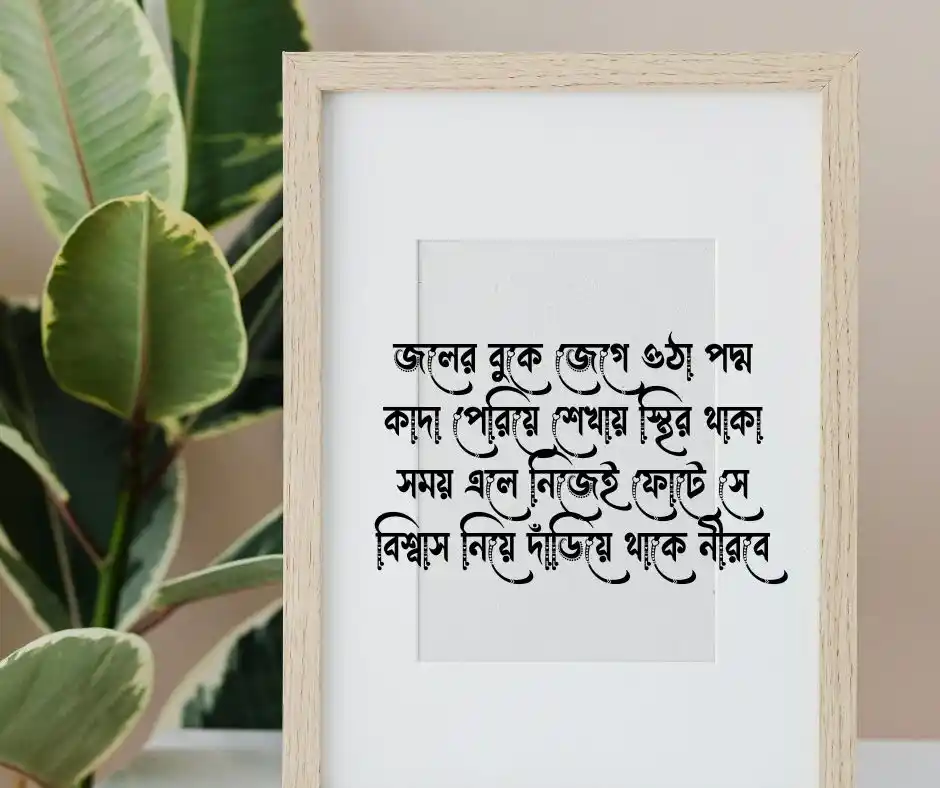 জলের বুকে জেগে ওঠা পদ্ম
কাদা পেরিয়ে শেখায় স্থির থাকা
সময় এলে নিজেই ফোটে সে
বিশ্বাস নিয়ে দাঁড়িয়ে থাকে নীরবে